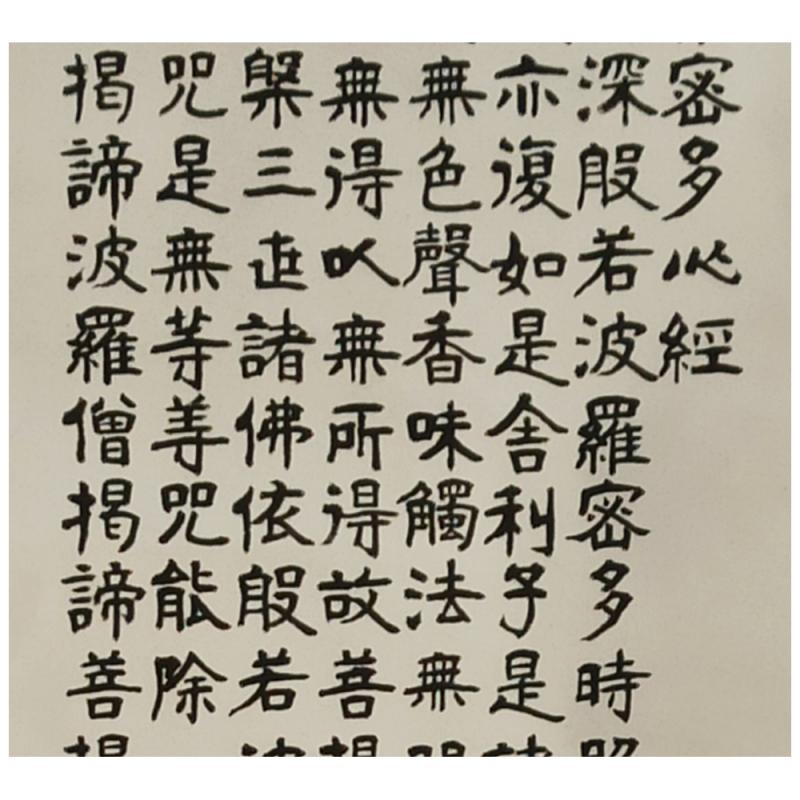 密多心經
深般若波羅密多時
亦復如是舍利子是
無色聲香味觸法無
無得以無所得故菩
槃三世諸佛依般若
咒是無等等咒能除
揭諦波羅僧揭諦菩